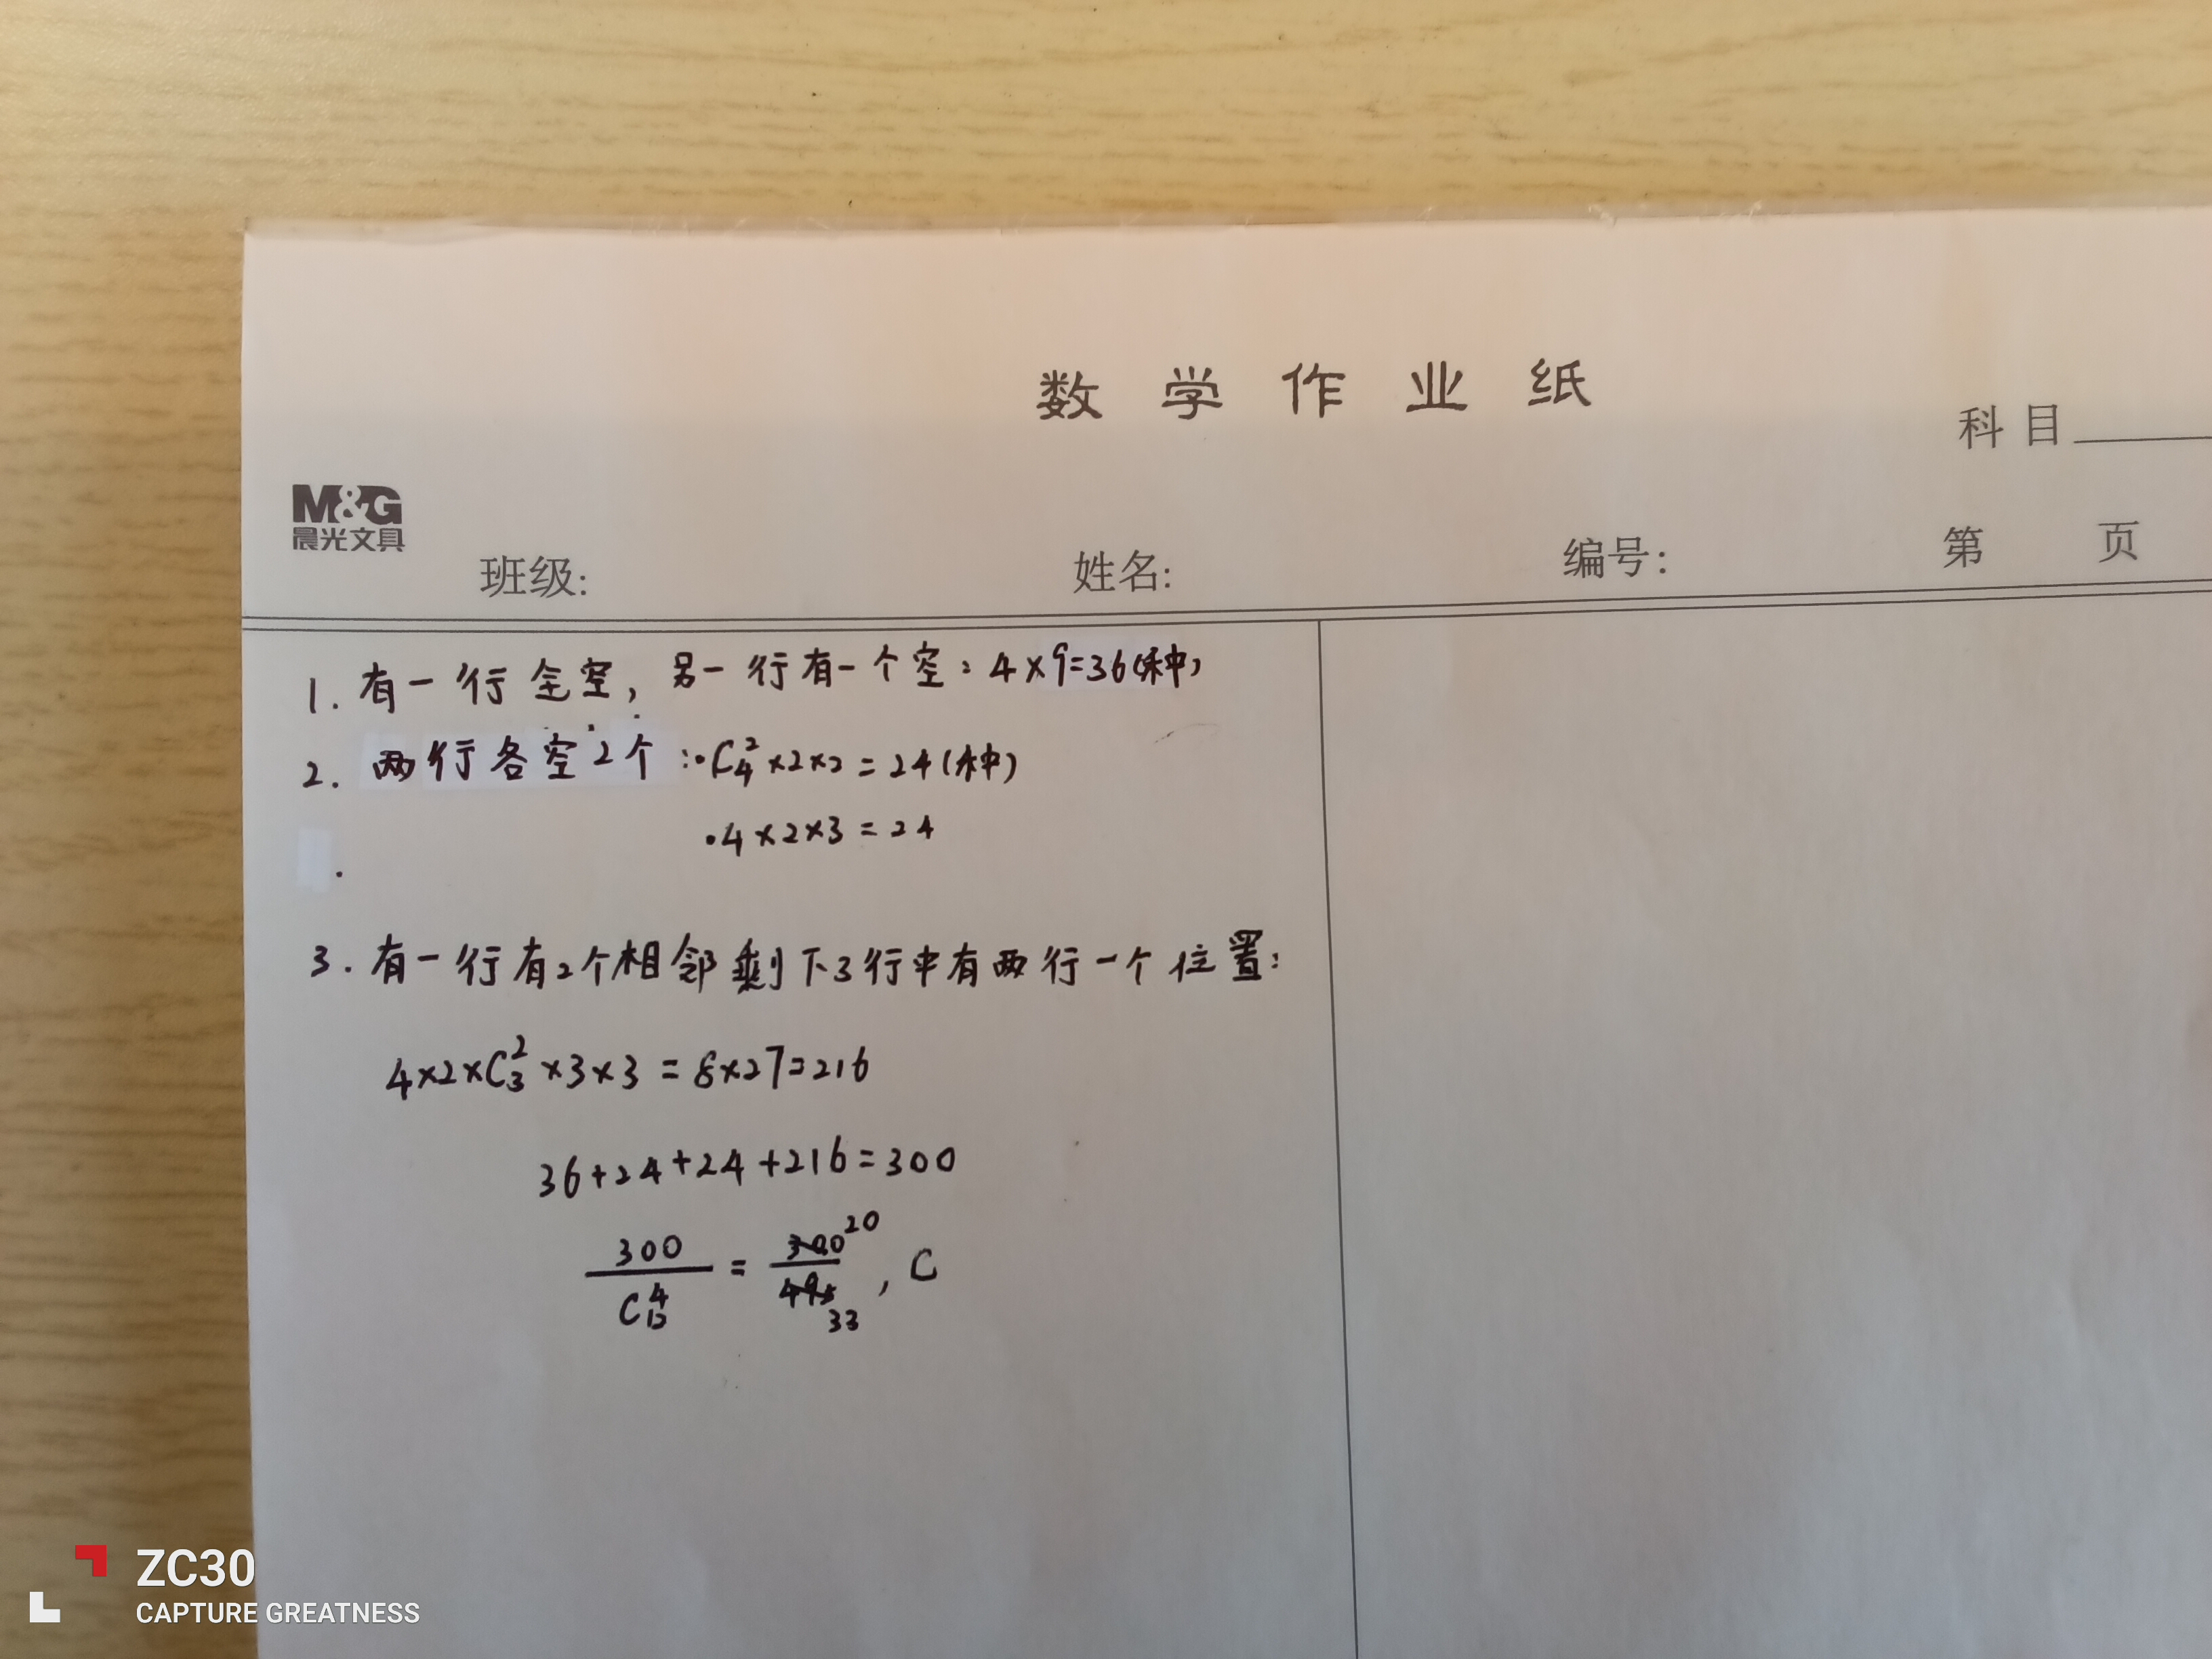 数学作业纸
科目
M&G
晨光文具
班级:
姓名:
编号:
第 页
1. 有一行全空, 另一行有一个空: 4×9=36(种)
2. 两行各空2个: ·C₄²×2×2=24(种)
·4×2×3=24
.
3. 有一行有2个相邻剩下3行中有两行一个位置:
4×2×C₃²×3×3=8×27=216
36+24+24+216=300
300/C₁₂⁴ = 300/495 20 33, C
ZC30
CAPTURE GREATNESS